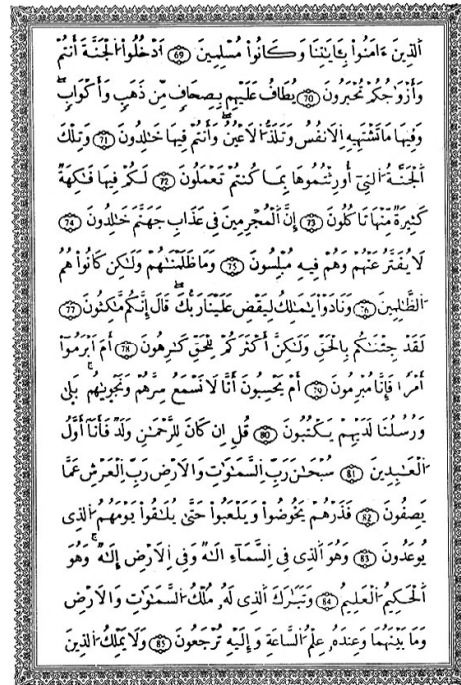 اَلذِينَ ءَامَنُواْ بِـَٔايَٰتِنَا وَكَانُواْ مُسْلِمِينَ 69 اَدْخُلُواْ الْجَنَّةَ أَنتُمْ
وَأَزْوَٰجُكُمْ تُحْبَرُونَ 70 يُطَافُ عَلَيْهِم بِصِحَافٍ مِّن ذَهَبٍ وَأَكْوَابٍ
وَفِيهَا مَا تَشْتَهِيهِ اِلَانفُسُ وَتَلَذُّ اُلَاعْيُنُ وَأَنتُمْ فِيهَا خَٰلِدُونَ 71 وَتِلْكَ
اَلْجَنَّةُ اُلتِےٓ أُورِثْتُمُوهَا بِمَا كُنتُمْ تَعْمَلُونَ 72 لَكُمْ فِيهَا فَٰكِهَةٌ
كَثِيرَةٌ مِّنْهَا تَاكُلُونَ 73 إِنَّ اَلْمُجْرِمِينَ فِے عَذَابِ جَهَنَّمَ خَٰلِدُونَ 74
لَا يُفَتَّرُ عَنْهُمْ وَهُمْ فِيهِ مُبْلِسُونَ 75 وَمَا ظَلَمْنَٰهُمْ وَلَٰكِن كَانُواْ هُمُ
اُلظَّٰلِمِينَ 76 وَنَادَوْاْ يَٰمَٰلِكُ لِيَقْضِ عَلَيْنَا رَبُّكَ قَالَ إِنَّكُم مَّٰكِثُونَ 77
لَقَدْ جِئْنَٰكُم بِالْحَقِّ وَلَٰكِنَّ أَكْثَرَكُمْ لِلْحَقِّ كَٰرِهُونَ 78 أَمَ اَبْرَمُواْ
أَمْراً فَإِنَّا مُبْرِمُونَ 79 أَمْ يَحْسِبُونَ أَنَّا لَا نَسْمَعُ سِرَّهُمْ وَنَجْوَيٰهُم بَلَىٰ
وَرُسُلُنَا لَدَيْهِمْ يَكْتُبُونَ 80 قُلِ اِن كَانَ لِلرَّحْمَٰنِ وَلَدٌ فَأَنَآ أَوَّلُ
اُلْعَٰبِدِينَ 81 سُبْحَٰنَ رَبِّ اِلسَّمَٰوَٰتِ وَالَارْضِ رَبِّ اِلْعَرْشِ عَمَّا
يَصِفُونَ 82 فَذَرْهُمْ يَخُوضُواْ وَيَلْعَبُواْ حَتَّىٰ يُلَٰقُواْ يَوْمَهُمُ اُلذِے
يُوعَدُونَ 83 وَهُوَ اَلذِے فِے اِلسَّمَآءِ الَٰهٌ وَفِے اِلَارْضِ إِلَٰهٌ وَهُوَ
اَلْحَكِيمُ اُلْعَلِيمُ 84 وَتَبَٰرَكَ اَلذِے لَهُۥ مُلْكُ اُلسَّمَٰوَٰتِ وَالَارْضِ
وَمَا بَيْنَهُمَا وَعِندَهُۥ عِلْمُ اُلسَّاعَةِ وَإِلَيْهِ تُرْجَعُونَ 85 وَلَا يَمْلِكُ اُلذِينَ